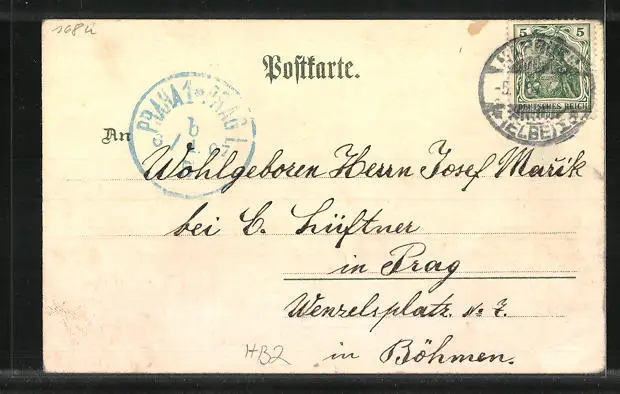 168 u
5 5
DEUTSCHES REICH
(ELBE)
Postkarte.
PRAHA 1 PRAG 1
An
Wohlgeboren Herrn Josef Mařik
bei C. Lüftner
in Prag
Wenzelsplatz. No 7.
in Böhmen.
HB2